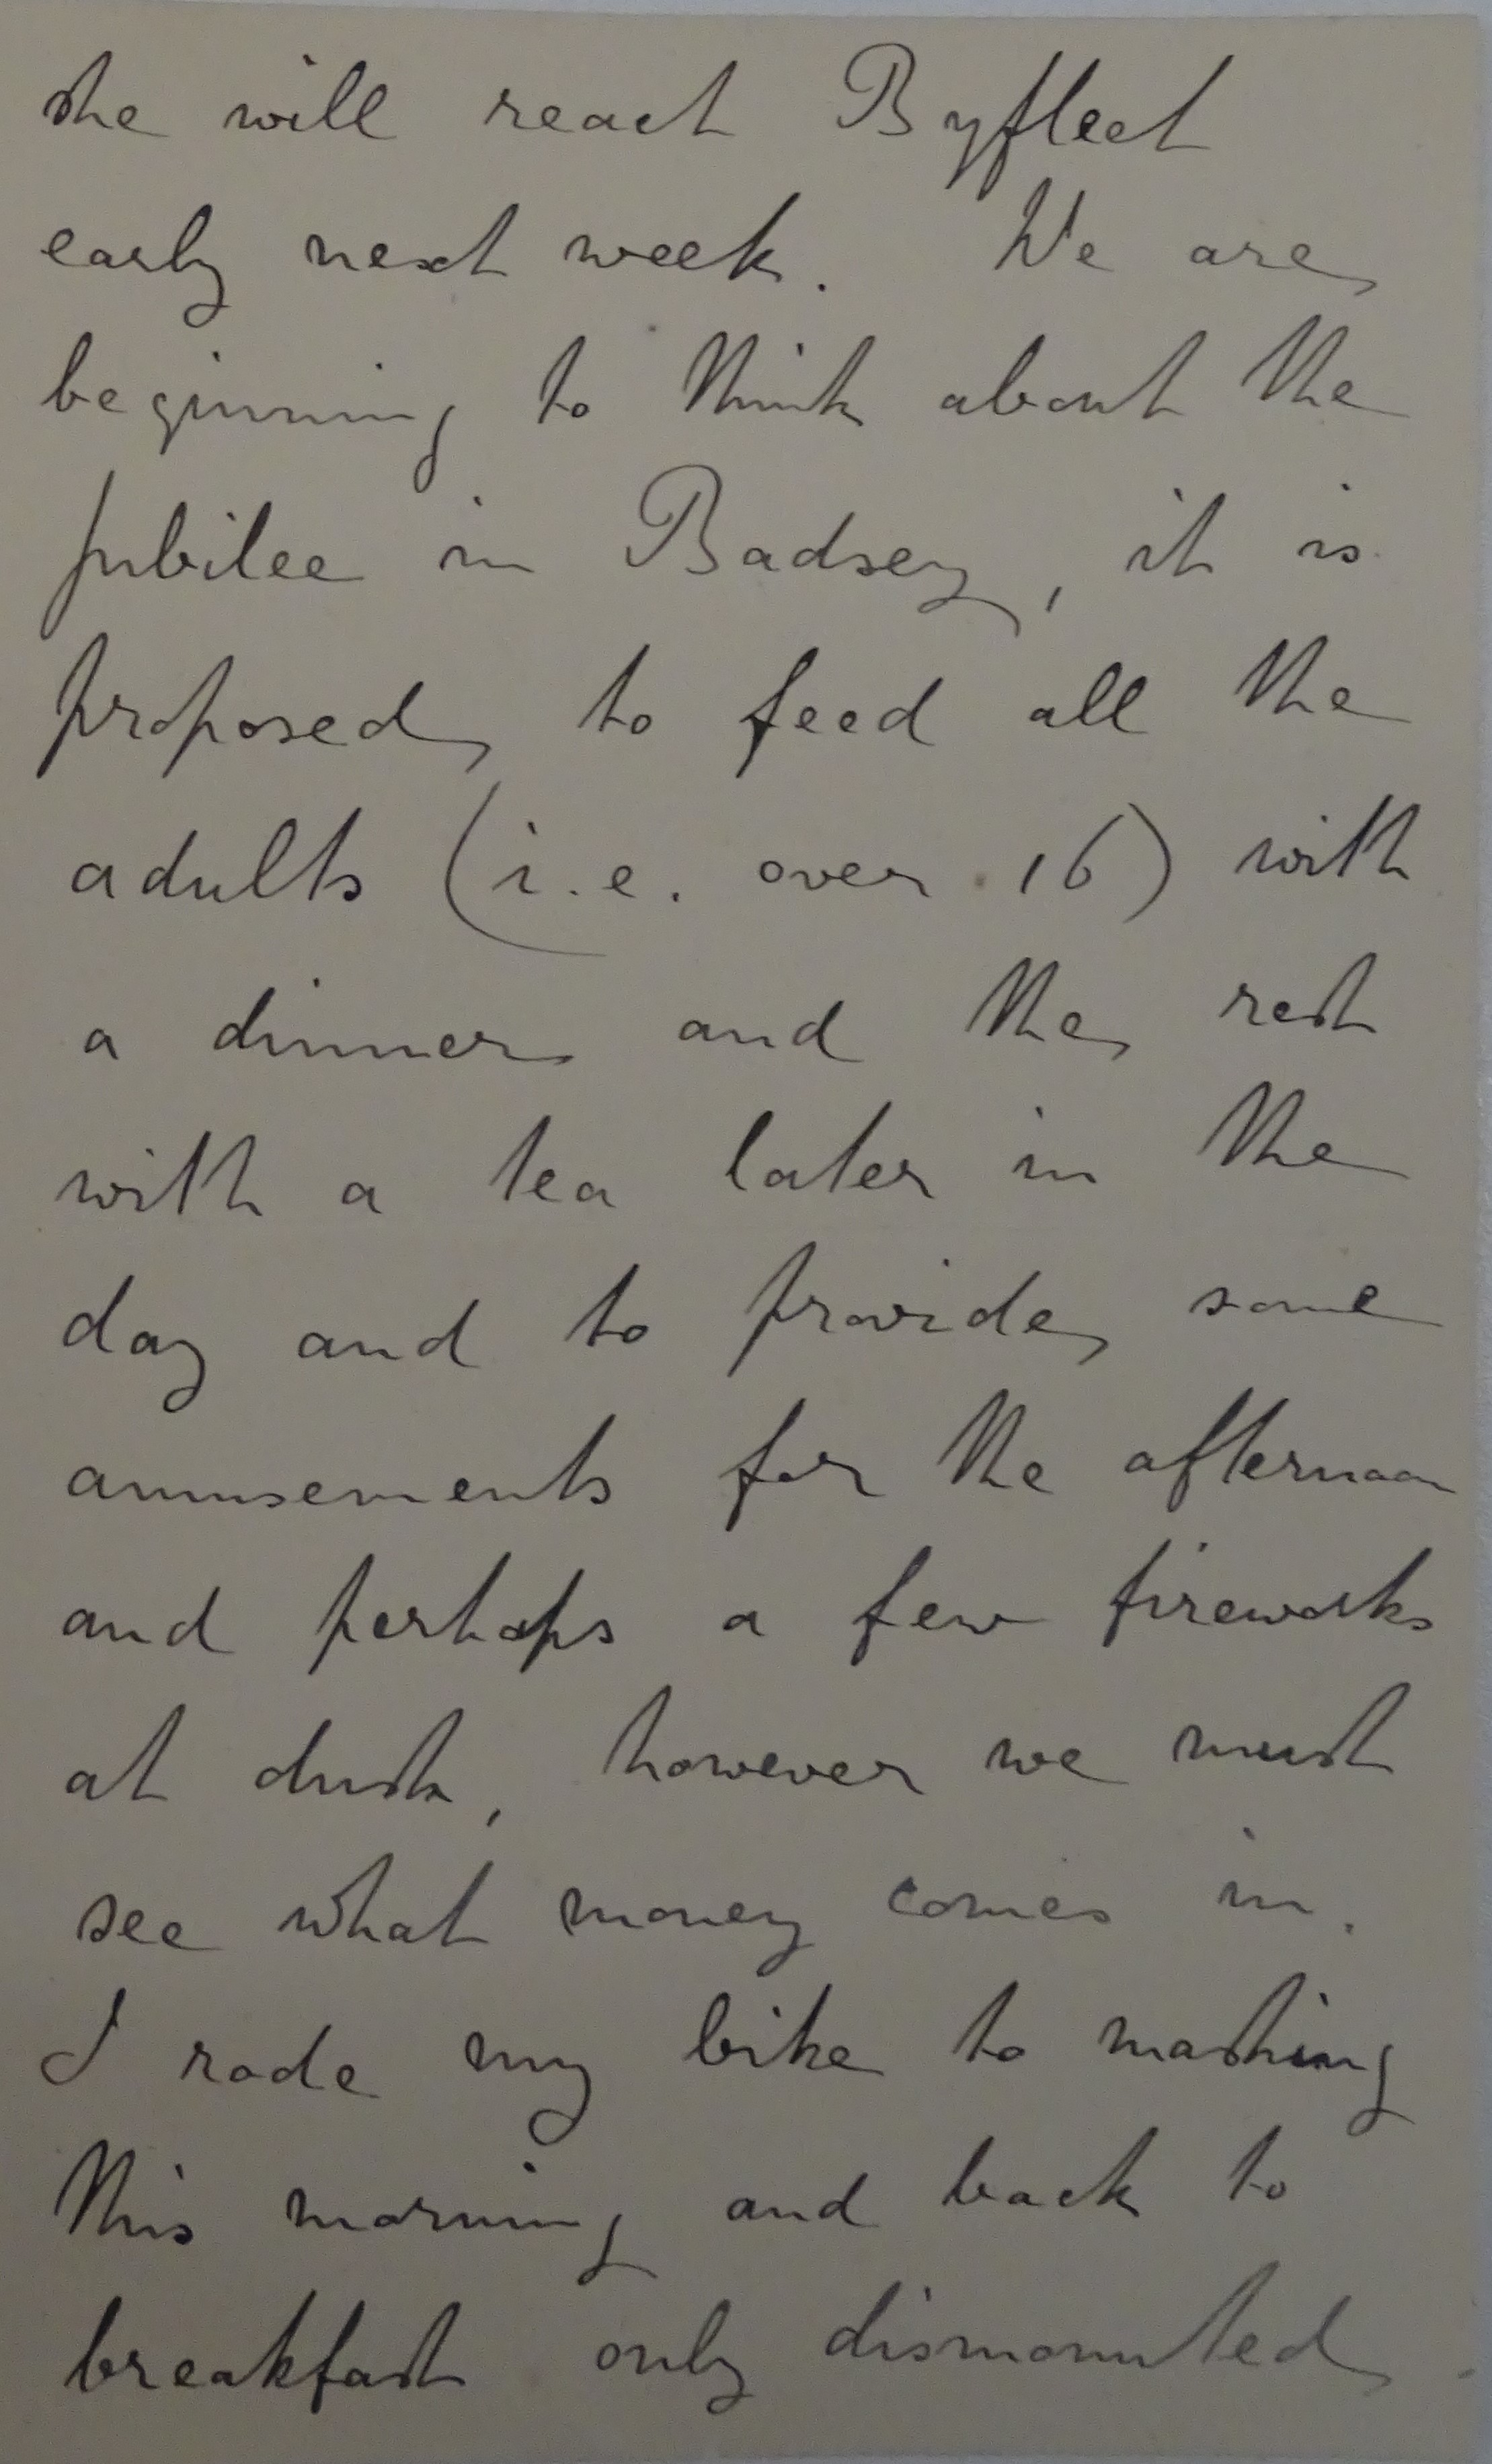 she will reach Byfleet
early next week. We are
beginning to think about the
Jubilee in Badsey, it is
proposed to feed all the
adults (i.e. over 16) with
a dinner and the rest
with a tea later in the
day and to provide some
amusements for the afternoon
and perhaps a few fireworks
at dusk, however we must
see what money comes in.
I rode my bike to mashing
this morning and back to
breakfast only dismounted